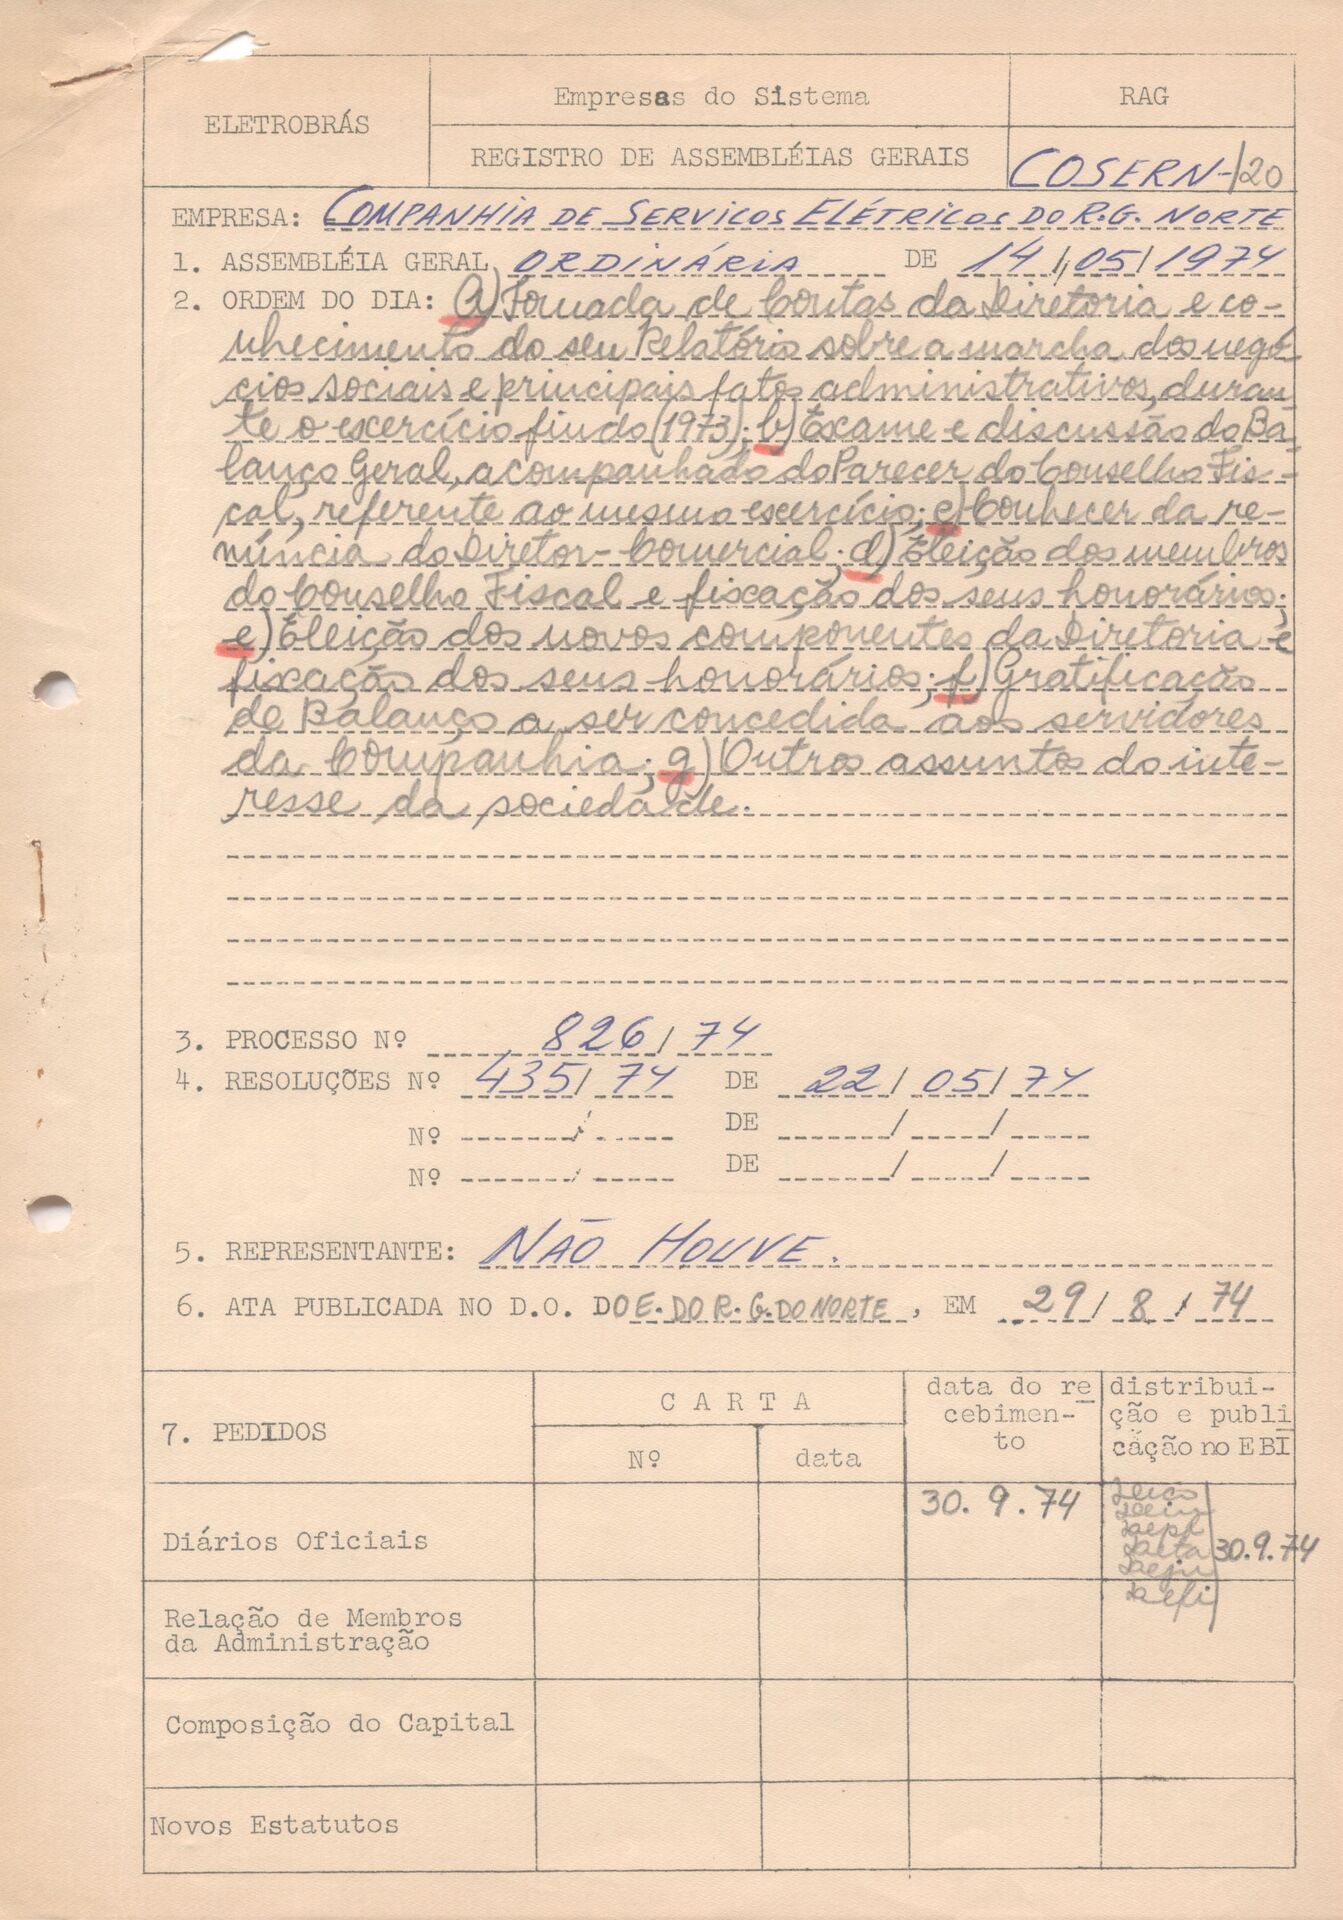 ELETROBRÁS
Empresas do Sistema
RAG
REGISTRO DE ASSEMBLÉIAS GERAIS
COSERN-/20
EMPRESA: COMPANHIA DE SERVICOS ELÉTRICOS DO R.G. NORTE
1. ASSEMBLÉIA GERAL ORDINÁRIA DE 14/05/1974
2. ORDEM DO DIA: a) Tomada de Contas da Diretoria e co-
nhecimento do seu Relatório sobre a marcha dos negó-
cios sociais e principais fatos administrativos, duran-
te o exercício findo (1973); b) Exame e discussão do Ba-
lanço Geral, acompanhado do Parecer do Conselho Fis-
cal, referente ao mesmo exercício; c) Conhecer da re-
núncia do Diretor-Comercial; d) Eleição dos membros
do Conselho Fiscal e fixação dos seus honorários;
e) Eleição dos novos componentes da Diretoria e
fixação dos seus honorários; f) Gratificação
de Balanço a ser concedida aos servidores
da Companhia; g) Outros assuntos do inte-
resse da sociedade.
3. PROCESSO Nº 826/74
4. RESOLUÇÕES Nº 435/74 DE 22/05/74
Nº / DE / /
Nº / DE / /
5. REPRESENTANTE: NÃO HOUVE.
6. ATA PUBLICADA NO D.O. DO E. DO R.G. DO NORTE, EM 29/8/74
7. PEDIDOS
C A R T A
Nº
data
data do re
cebimen-
to
distribui-
ção e publi
cação no EBI
Diários Oficiais
30.9.74
30.9.74
Relação de Membros
da Administração
Composição do Capital
Novos Estatutos